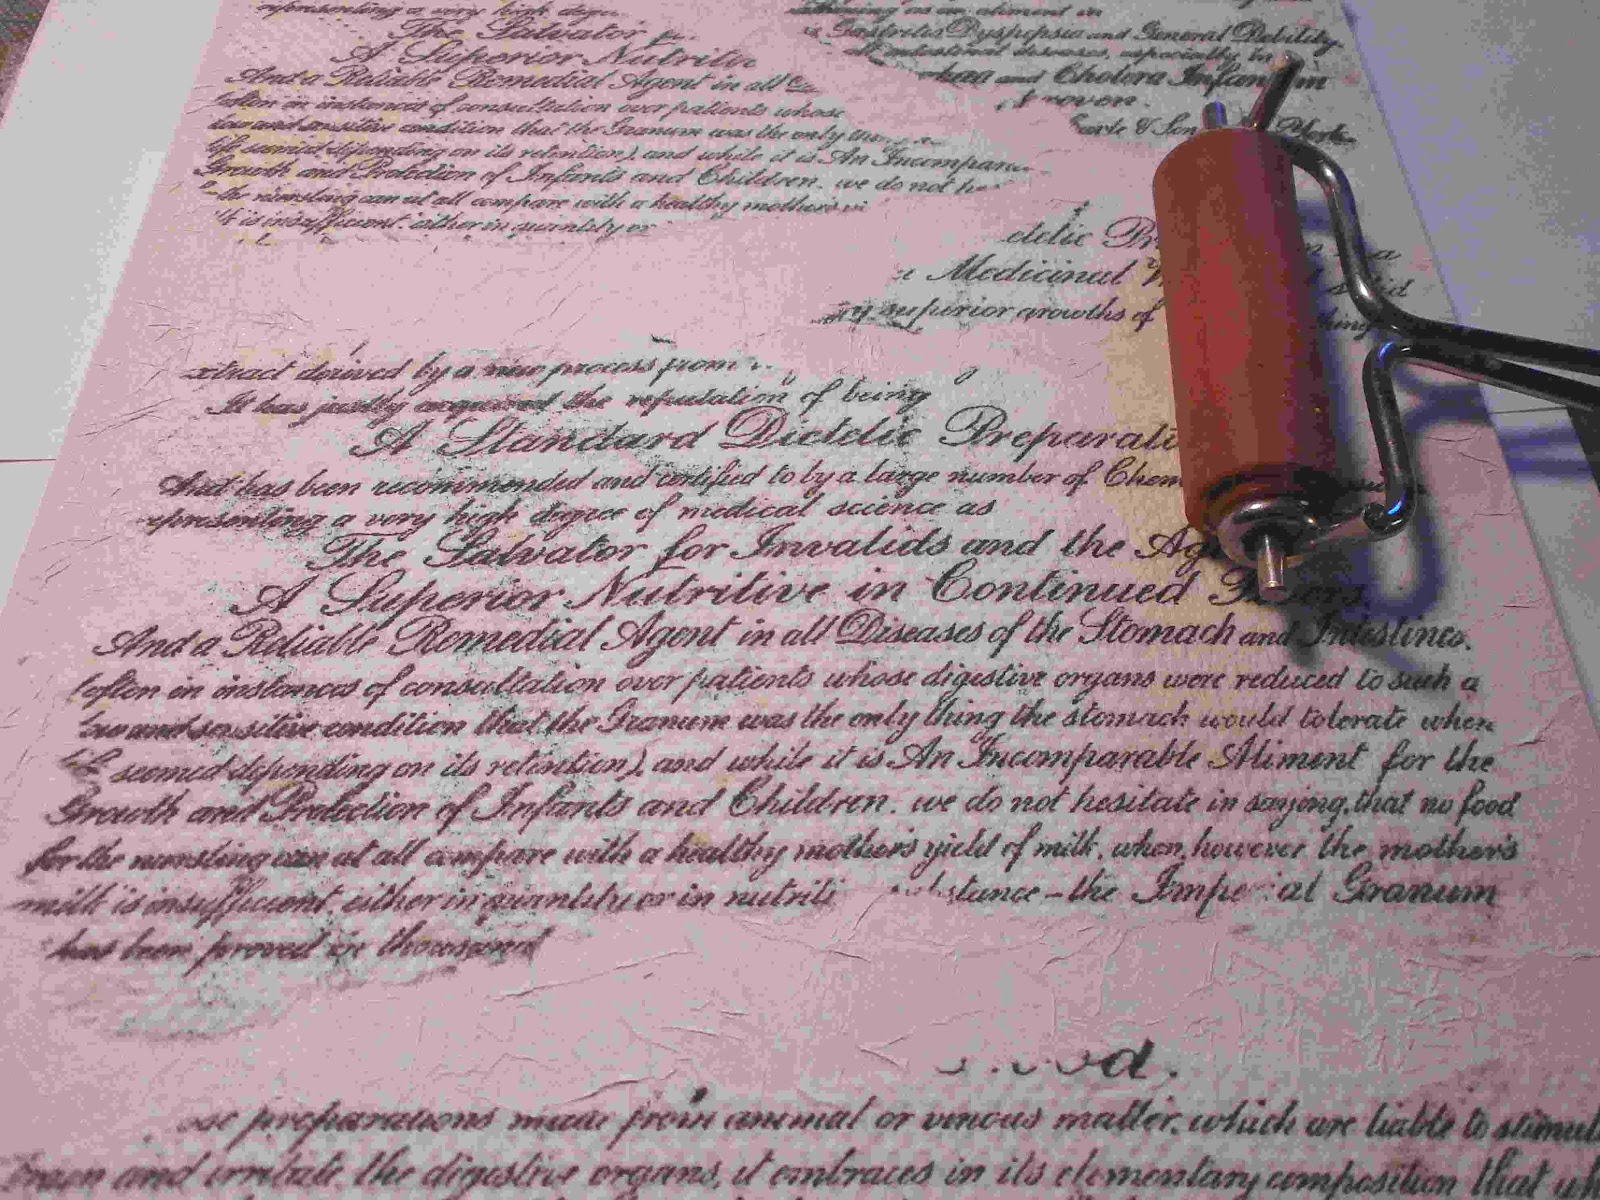 representing a very high
The Salvator
A Superior Nutritiv
And a Reliable Remedial Agent in all
(often in instances of consultation over patients whose
low and sensitive condition that the Granum was the only
life seemed depending on its retention), and while it is An Incompara
Growth and Protection of Infants and Children, we do not he
the nursling can at all compare with a healthy mother's
it is insufficient, either in quantity or
as an aliment in
Gastritis Dyspepsia and General Debility
intestinal diseases, especially in
and Cholera Infantum
proven.
& Son
Medicinal
superior growths of
xtract derived by a new process from
It has justly acquired the reputation of being
A Standard Dietetic Preparati
And has been recommended and certified to by a large number of Chem
epresenting a very high degree of medical science as
The Salvator for Invalids and the Ag
A Superior Nutritive in Continued Fevers
And a Reliable Remedial Agent in all Diseases of the Stomach and Intestines.
(often in instances of consultation over patients whose digestive organs were reduced to such a
low and sensitive condition that the Granum was the only thing the stomach would tolerate when
life seemed depending on its retention), and while it is An Incomparable Aliment for the
Growth and Protection of Infants and Children, we do not hesitate in saying, that no food
for the nursling can at all compare with a healthy mother's yield of milk, when, however the mother's
milk is insufficient, either in quantity or in nutriti substance – the Imperial Granum
has been proved in thousand
preparations made from animal or vinous matter, which are liable to stimul
brain and irritate the digestive organs, it embraces in its elementary composition that wh